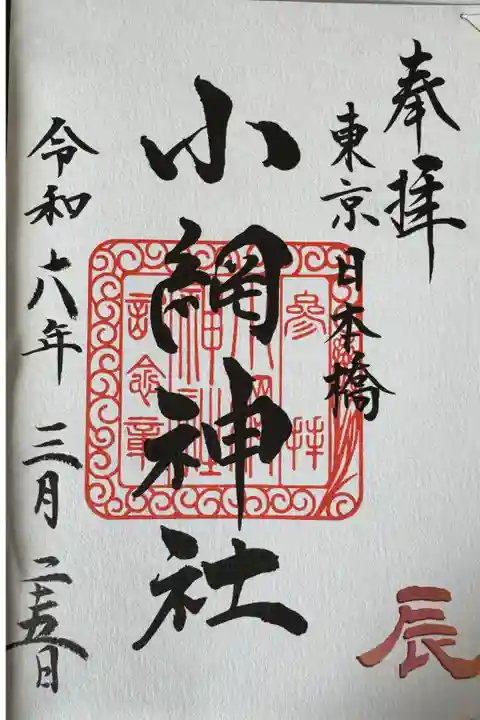 奉拝
東京
日本橋
小網神社
参拝
小網
神社
記念章
令和六年三月二十五日
辰